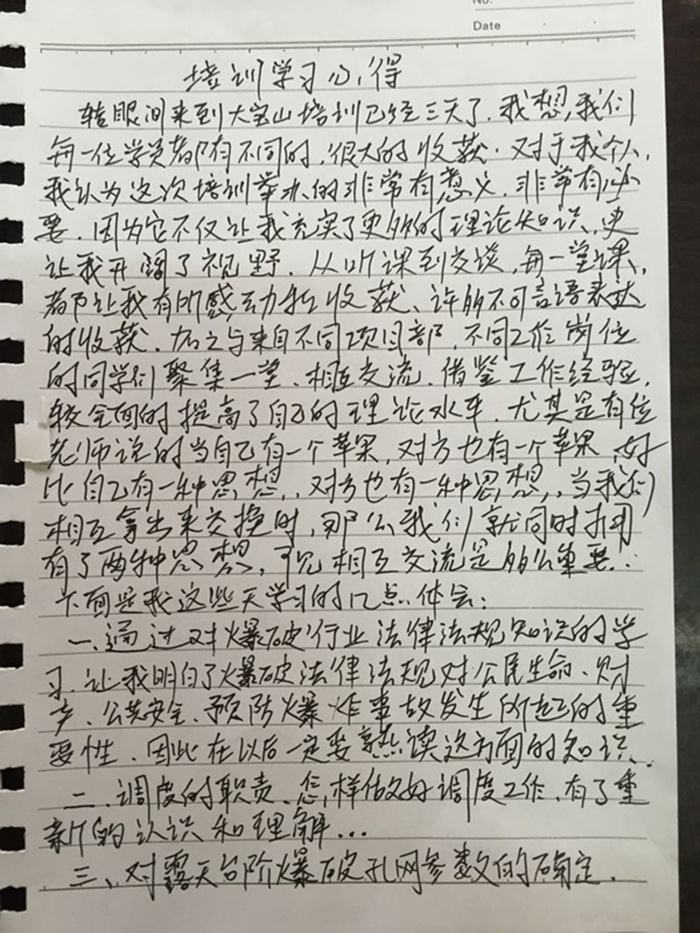 No.
Date
培训学习心得
转眼间来到大宝山培训已经三天了.我想,我们
每一位学员都有不同的,很大的收获.对于我个人,
我认为这次培训举办的非常有意义.非常有必
要.因为它不仅让我充实了更多的理论知识,更
让我开阔了视野.从听课到交谈,每一堂课,
都让我有所感动和收获、许多不可言语表达
的收获.加之与来自不同项目部,不同工作岗位
的同学们聚集一堂、相互交流.借鉴工作经验,
较全面的提高了自己的理论水平.尤其是有位
老师说的当自己有一个苹果,对方也有一个苹果,好
比自己有一种思想,,对方也有一种思想,,当我们
相互拿出来交换时,那么我们就同时拥
有了两种思想,可见相互交流是多么重要.
下面是我这些天学习的几点体会:
一、通过对爆破行业法律法规知识的学
习.让我明白了爆破法律法规对公民生命、财
产、公共安全、预防爆炸事故发生所起的重
要性.因此在以后一定要熟读这方面的知识.
二、调度的职责、怎样做好调度工作,有了重
新的认识和理解...
三、对露天台阶爆破孔网参数的确定.